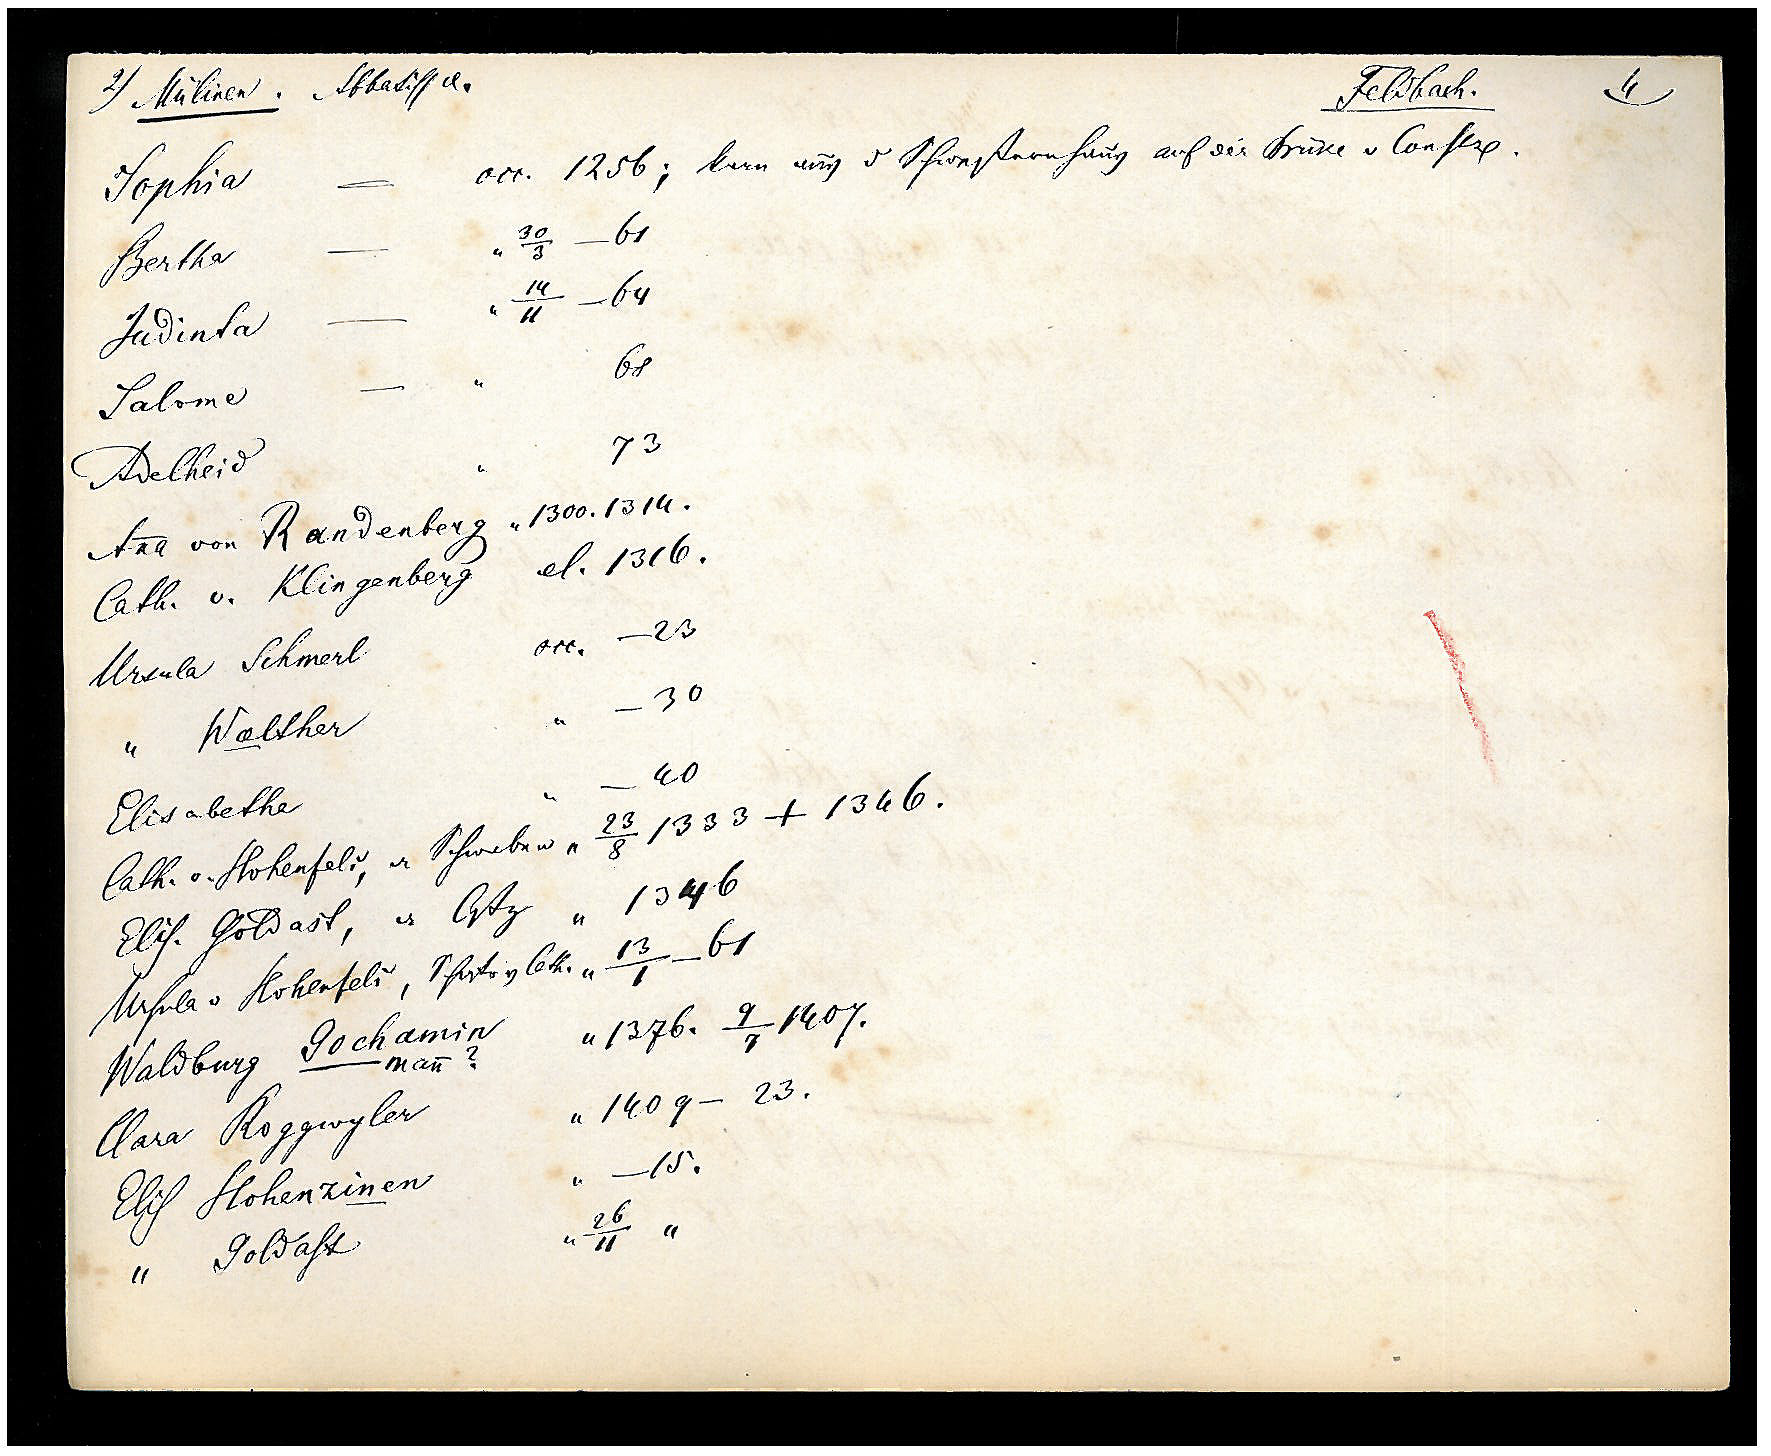 2) Mülinen. Abbatissæ. Feldbach. 4
Sophia — occ. 1256; kam aus d Schwesternhaus auf der Bruke v Constz.
Bertha — " 30/3 —61
Judinta — " 14/11 —64
Salome — " 68
Adelheid " 73
Aña von Randenberg " 1300. 1314.
Cath. v. Klingenberg el. 1316.
Ursula Schmerl occ. —23
" Wælther " —30
Elisabetha " —40
Cath. v. Hohenfels, Schwaben " 23/8 1333 + 1346.
Elis. Goldast, Cstz " 1346
Ursula v Hohenfels, Schwstr v Cath. " 13/1 —61
Waldburg Gochamin " 1376. 9/7 1407.
mañ?
Clara Roggwyler " 1409 — 23.
Elis Hohenzinen " —15.
" Goldast " 26/11 "